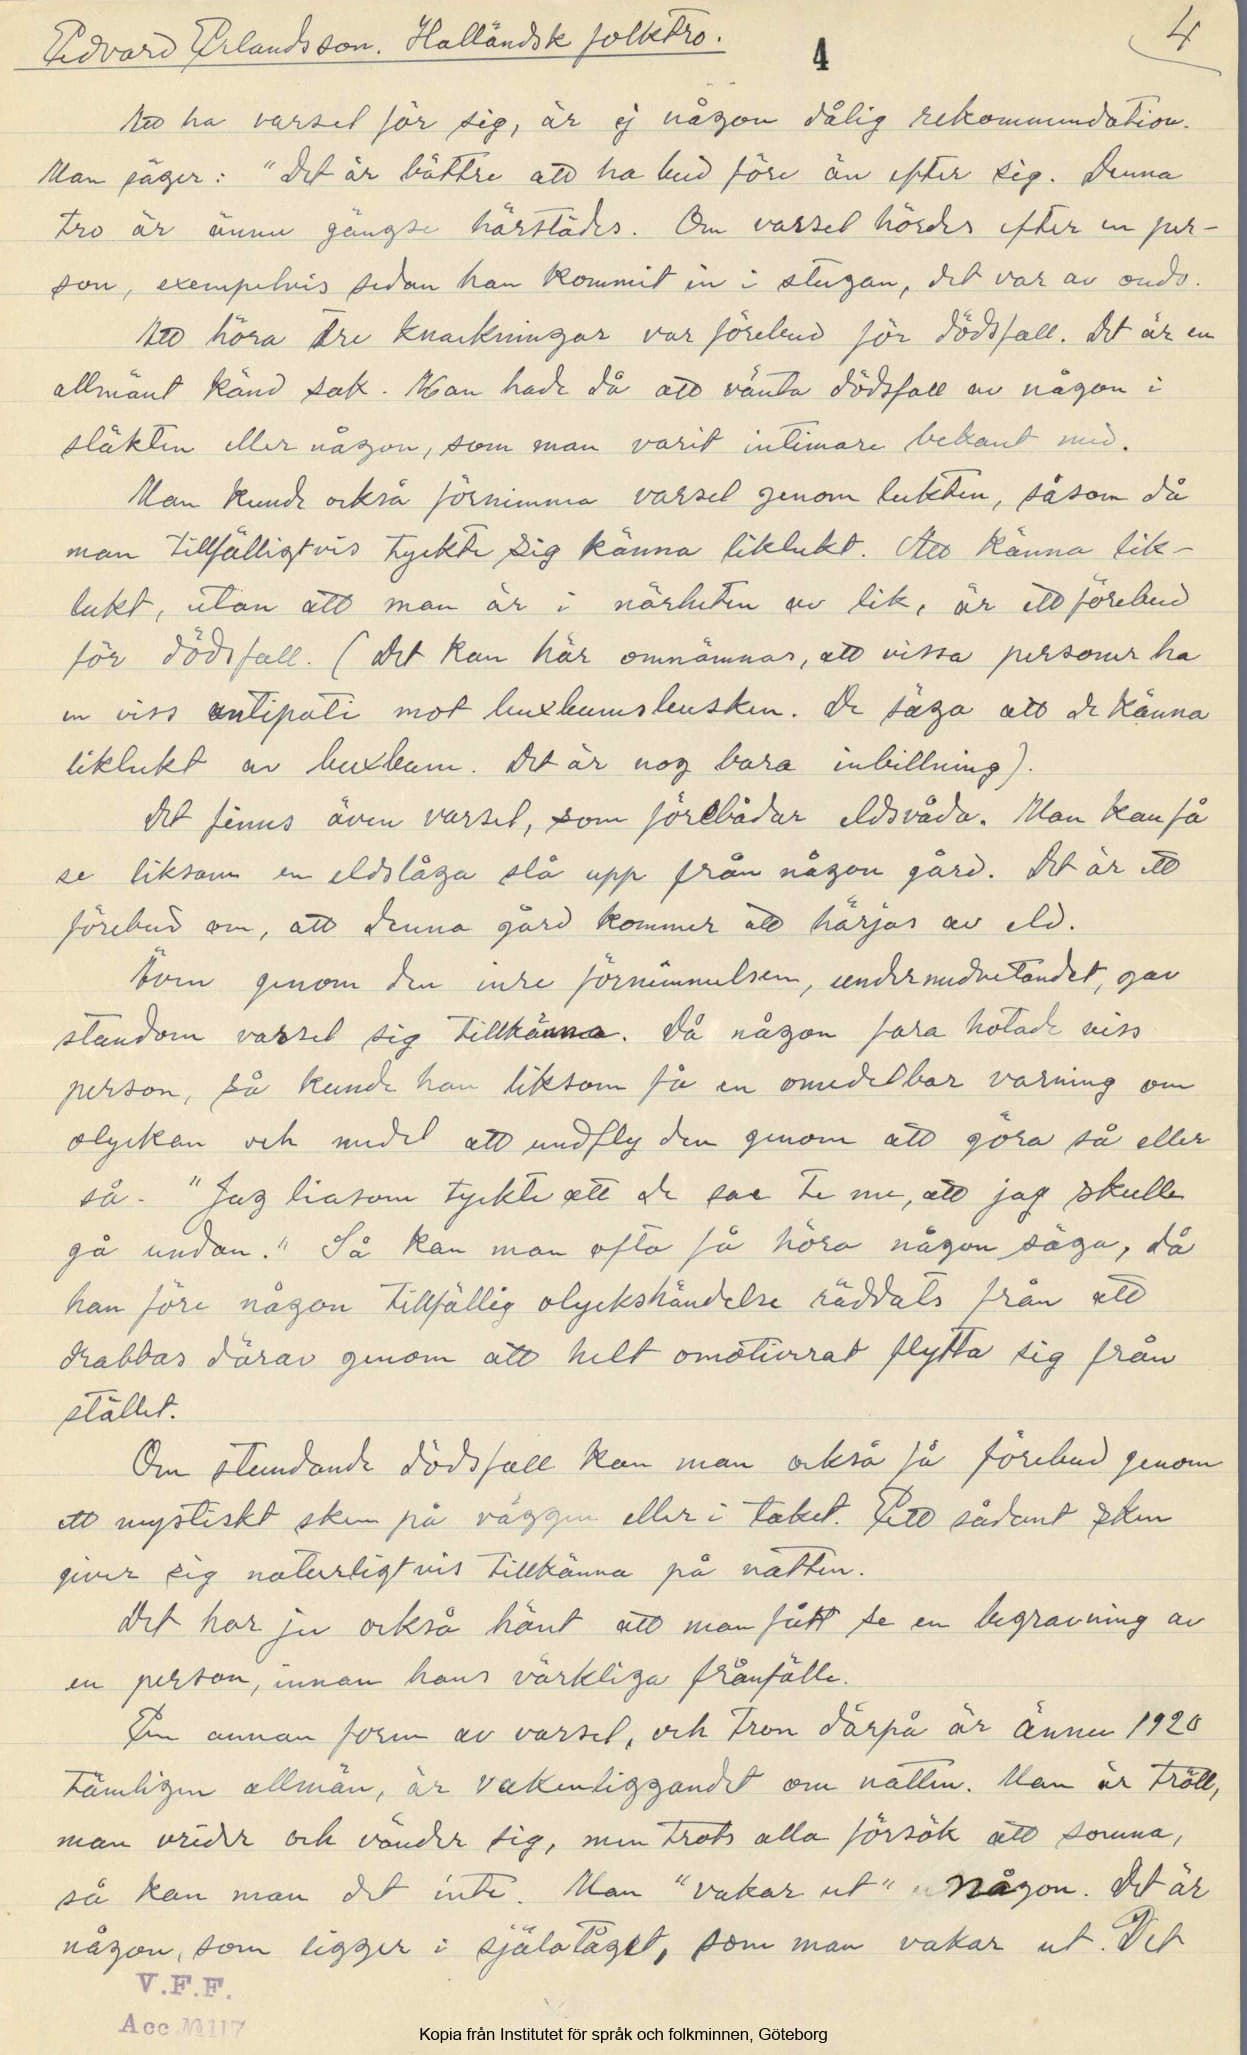 Edvard Erlandsson. Halländsk folktro.
4
4
Att ha varsel för sig, är ej någon dålig rekommendation.
Man säger: "Det är bättre att ha bud före än efter sig. Denna
tro är ännu gängse härstädes. Om varsel hördes efter en per-
son, exempelvis sedan han kommit in i stugan, det var av ondo.
Att höra tre knackningar var förebud för dödsfall. Det är en
allmänt känd sak. Man hade då att vänta dödsfall av någon i
släkten eller någon, som man varit intimare bekant med.
Man kunde också förnimma varsel genom lukten, såsom då
man tillfälligtvis tyckte sig känna liklukt. Att känna lik-
lukt, utan att man är i närheten av lik, är ett förebud
för dödsfall. (Det kan här omnämnas, att vissa personer ha
en viss antipati mot buxbumsbusken. De säga att de känna
liklukt av buxbum. Det är nog bara inbillning).
Det finns även varsel, som förebådar eldsvåda. Man kan få
se liksom en eldslåga slå upp från någon gård. Det är ett
förebud om, att denna gård kommer att härjas av eld.
Även genom den inre förnimmelsen, undermedvetandet, gav
stundom varsel sig tillkänna. Då någon fara hotade viss
person, så kunde han liksom få en omedelbar varning om
olyckan och medel att undfly den genom att göra så eller
så. "Jag liasom tyckte att de sae te me, att jag skulle
gå undan." Så kan man ofta få höra någon säga, då
han före någon tillfällig olyckshändelse räddats från att
drabbas därav genom att helt omotiverat flytta sig från
stället.
Om stundande dödsfall kan man också få förebud genom
ett mystiskt sken på väggen eller i taket. Ett sådant sken
giver sig naturligtvis tillkänna på natten.
Det har ju också hänt att man fått se en begravning av
en person, innan hans värkliga frånfälle.
En annan form av varsel, och tron därpå är ännu 1920
tämligen allmän, är vakenliggandet om natten. Man är trött,
man vrider och vänder sig, men trots alla försök att somna,
så kan man det inte. Man "vakar ut" någon. Det är
någon, som ligger i själatåget, som man vakar ut. Det
V.F.F.
Acc № 117
Kopia från Institutet för språk och folkminnen, Göteborg